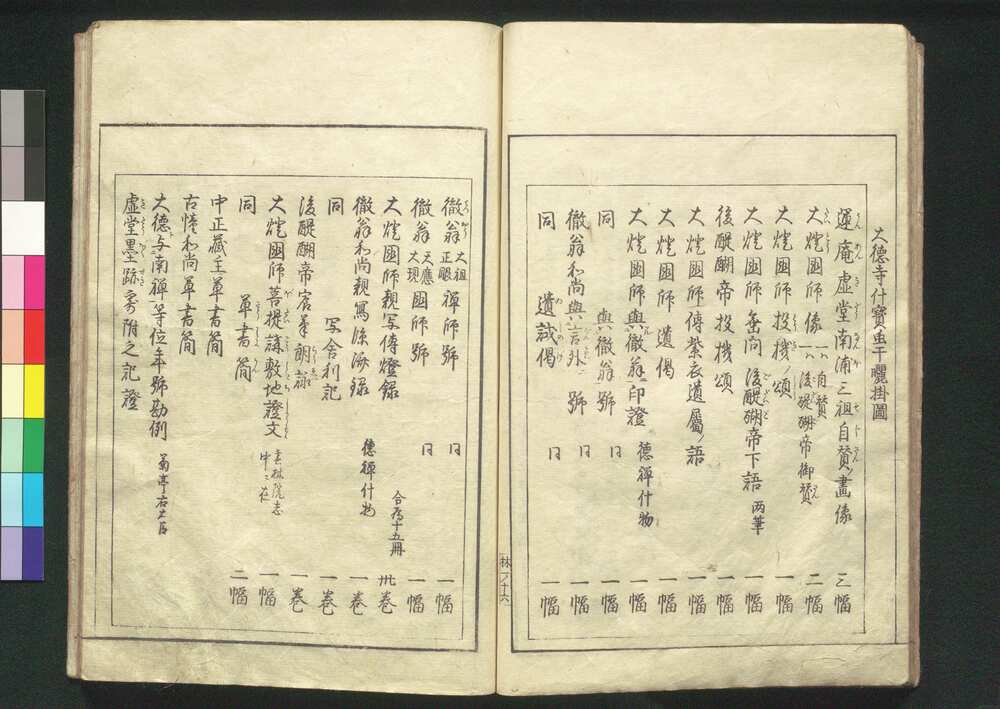 大德寺什寶虫干曬掛圖
運庵虚堂南浦三祖自賛ノ畫像 三幅
大燈國師像 一ハ自賛 一ハ後醍醐帝御賛 二幅
大燈國師投機ノ頌 一幅
大燈國師垂問 後醍醐帝下語 両筆 一幅
後醍醐帝投機頌 一幅
大燈國師傳紫衣遺屬ノ語 一幅
大燈國師遺偈 一幅
大燈國師與徹翁印證 德禪什物 一幅
同 與徹翁號 同 一幅
徹翁和尚與言外號 同 一幅
同 遺誡偈 同 一幅
林ノ十六
徹翁 大祖正眼 禪師號 同 一幅
徹翁 天應大現 國師號 同 一幅
大燈國師親写傳燈録 合為十五冊 卅巻
徹翁和尚親寫 德禪什物 一巻
同 写舎利記 一巻
後醍醐帝宸筆 一巻
大燈國師菩提講敷地證文 雲林院志中ニ在 一幅
同 草書簡 二幅
中正藏主草書簡
古和尚草書簡
大德与南禪等位年號勘例 菊亭右大臣
虚堂墨跡寄附之記證